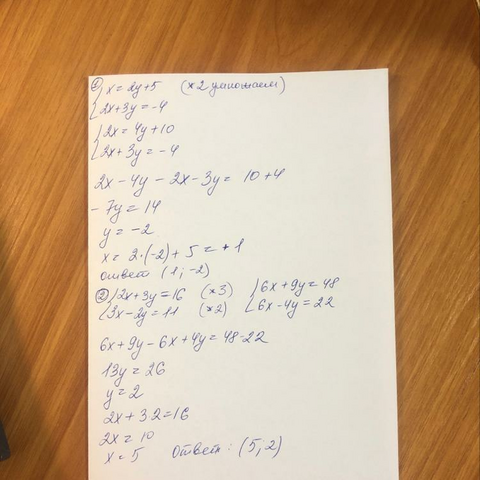 ① { x = 2y+5 (×2 умножаем)
{ 2x+3y = -4
{ 2x = 4y+10
{ 2x+3y = -4
2x - 4y - 2x - 3y = 10+4
- 7y = 14
y = -2
x = 2·(-2) + 5 = +1
ответ (1; -2)
② { 2x+3y = 16 (×3) { 6x + 9y = 48
{ 3x - 2y = 11 (×2) { 6x - 4y = 22
6x + 9y - 6x + 4y = 48-22
13y = 26
y = 2
2x + 3·2 = 16
2x = 10
x = 5 Ответ: (5; 2)